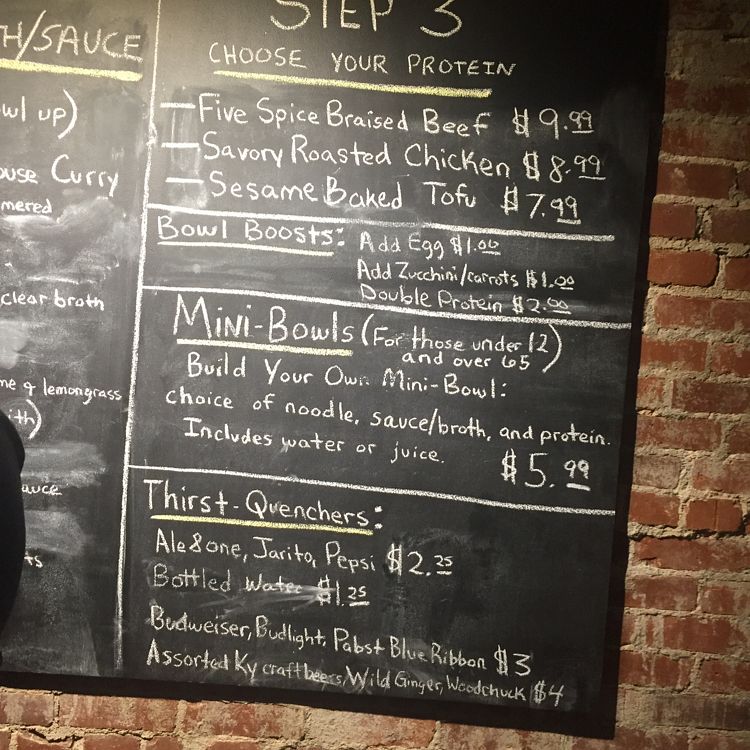 H/SAUCE
wl up)
ouse Curry
mered
clear broth
me & lemongrass
ith)
auce
ts
STEP 3
CHOOSE YOUR PROTEIN
— Five Spice Braised Beef $9.99
— Savory Roasted Chicken $8.99
— Sesame Baked Tofu $7.99
Bowl Boosts: Add Egg $1.00
Add Zucchini/carrots $1.00
Double Protein $2.00
Mini-Bowls (For those under 12
and over 65)
Build Your Own Mini-Bowl:
choice of noodle, sauce/broth, and protein.
Includes water or juice. $5.99
Thirst-Quenchers:
Ale8one, Jarito, Pepsi $2.25
Bottled Water $1.25
Budweiser, Budlight, Pabst Blue Ribbon $3
Assorted Ky craft beers, Wild Ginger, Woodchuck $4